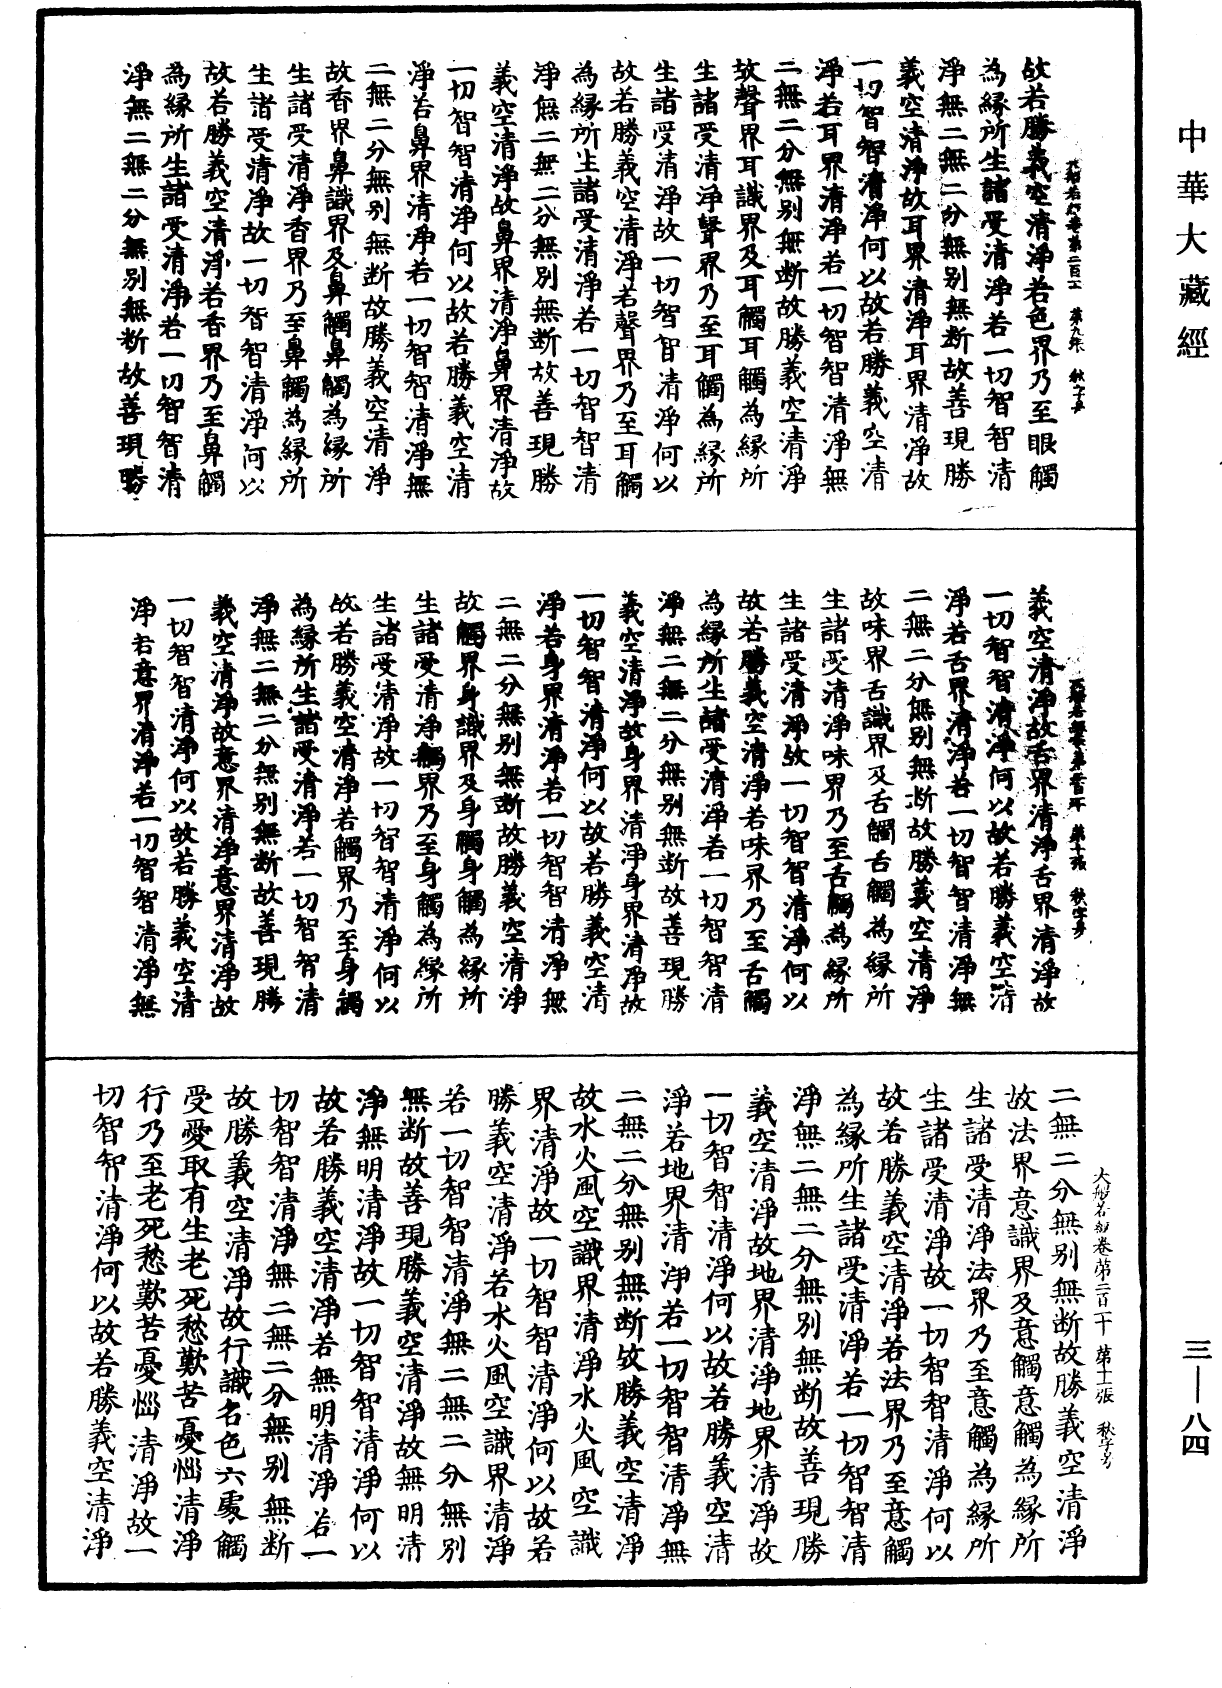 中華大藏經
故若勝義空清淨若色界乃至眼觸
為緣所生諸受清淨若一切智智清
淨無二無二分無別無斷故善現勝
義空清淨故耳界清淨耳界清淨故
一切智智清淨何以故若勝義空清
淨若耳界清淨若一切智智清淨無
二無二分無別無斷故勝義空清淨
故聲界耳識界及耳觸耳觸為緣所
生諸受清淨聲界乃至耳觸為緣所
生諸受清淨故一切智智清淨何以
故若勝義空清淨若聲界乃至耳觸
為緣所生諸受清淨若一切智智清
淨無二無二分無別無斷故善現勝
義空清淨故鼻界清淨鼻界清淨故
一切智智清淨何以故若勝義空清
淨若鼻界清淨若一切智智清淨無
二無二分無別無斷故勝義空清淨
故香界鼻識界及鼻觸鼻觸為緣所
生諸受清淨香界乃至鼻觸為緣所
生諸受清淨故一切智智清淨何以
故若勝義空清淨若香界乃至鼻觸
為緣所生諸受清淨若一切智智清
淨無二無二分無別無斷故善現勝
義空清淨故舌界清淨舌界清淨故
一切智智清淨何以故若勝義空清
淨若舌界清淨若一切智智清淨無
二無二分無別無斷故勝義空清淨
故味界舌識界及舌觸舌觸為緣所
生諸受清淨味界乃至舌觸為緣所
生諸受清淨故一切智智清淨何以
故若勝義空清淨若味界乃至舌觸
為緣所生諸受清淨若一切智智清
淨無二無二分無別無斷故善現勝
義空清淨故身界清淨身界清淨故
一切智智清淨何以故若勝義空清
淨若身界清淨若一切智智清淨無
二無二分無別無斷故勝義空清淨
故觸界身識界及身觸身觸為緣所
生諸受清淨觸界乃至身觸為緣所
生諸受清淨故一切智智清淨何以
故若勝義空清淨若觸界乃至身觸
為緣所生諸受清淨若一切智智清
淨無二無二分無別無斷故善現勝
義空清淨故意界清淨意界清淨故
一切智智清淨何以故若勝義空清
淨若意界清淨若一切智智清淨無
大般若經卷第二百二十 第十一張 秋字号
二無二分無別無斷故勝義空清淨
故法界意識界及意觸意觸為緣所
生諸受清淨法界乃至意觸為緣所
生諸受清淨故一切智智清淨何以
故若勝義空清淨若法界乃至意觸
為緣所生諸受清淨若一切智智清
淨無二無二分無別無斷故善現勝
義空清淨故地界清淨地界清淨故
一切智智清淨何以故若勝義空清
淨若地界清淨若一切智智清淨無
二無二分無別無斷故勝義空清淨
故水火風空識界清淨水火風空識
界清淨故一切智智清淨何以故若
勝義空清淨若水火風空識界清淨
若一切智智清淨無二無二分無別
無斷故善現勝義空清淨故無明清
淨無明清淨故一切智智清淨何以
故若勝義空清淨若無明清淨若一
切智智清淨無二無二分無別無斷
故勝義空清淨故行識名色六處觸
受愛取有生老死愁歎苦憂惱清淨
行乃至老死愁歎苦憂惱清淨故一
切智智清淨何以故若勝義空清淨
三—八四